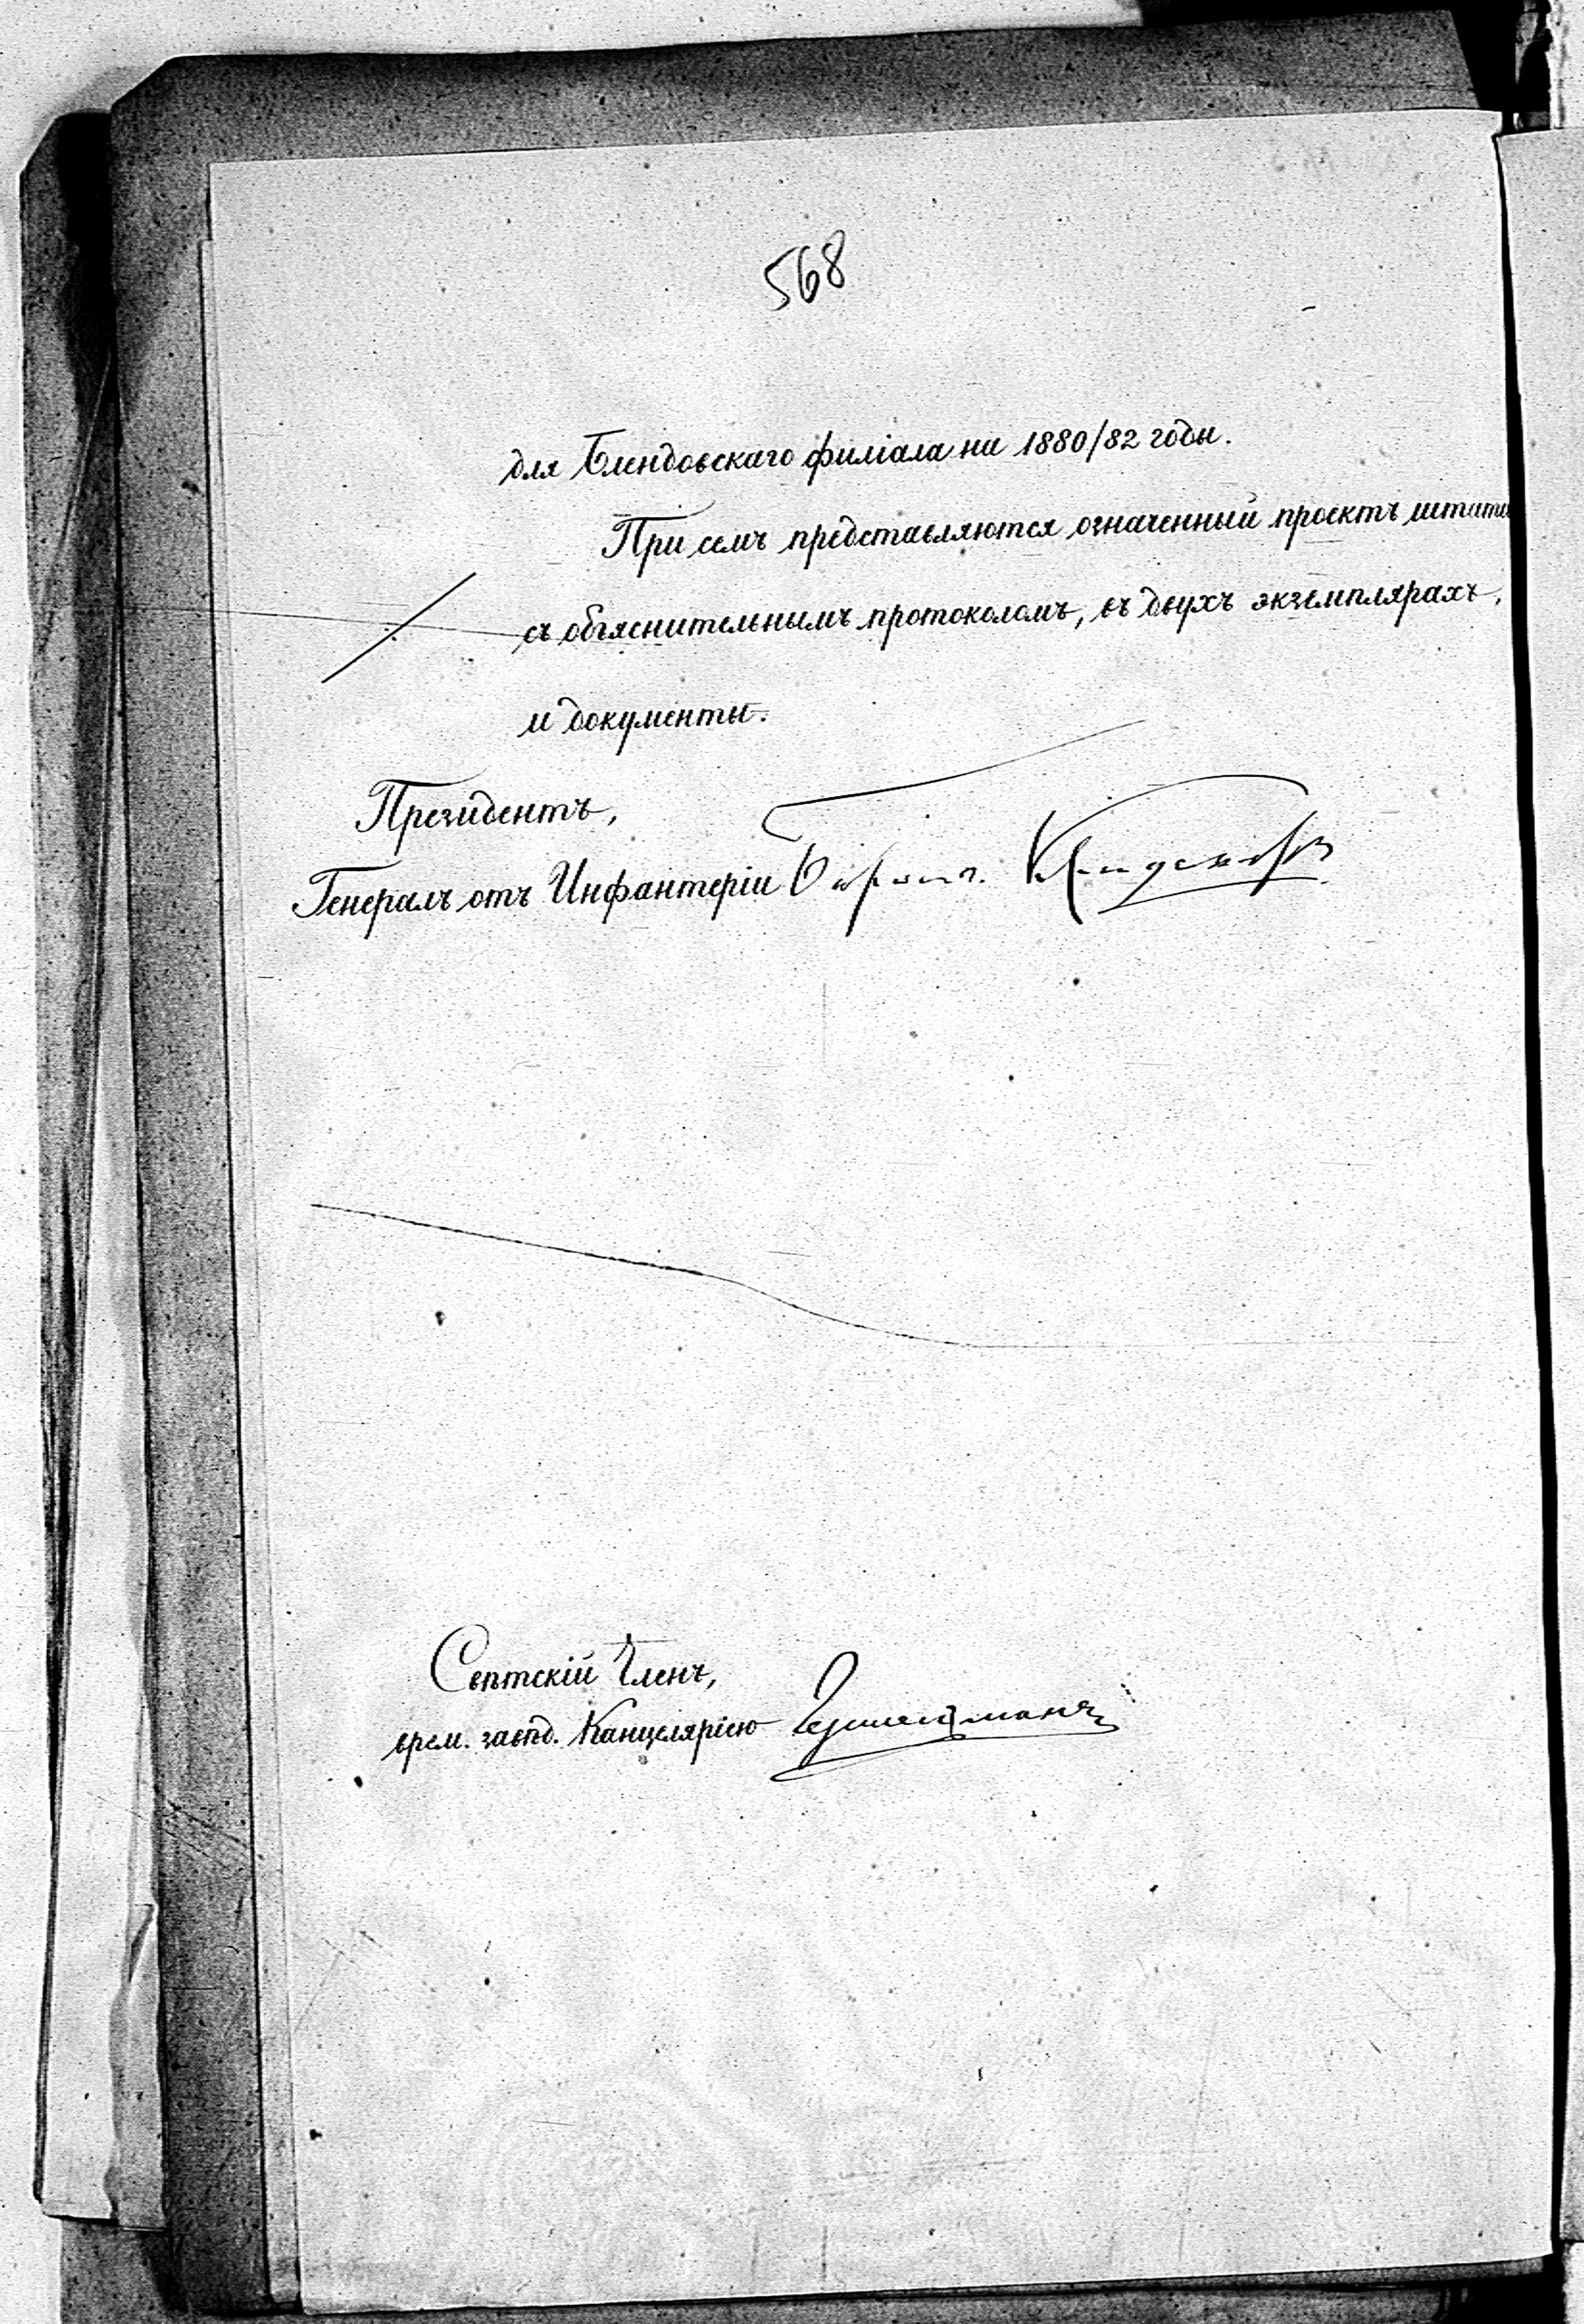 568
для Блендовскаго филіала на 1880/82 годы.
При семъ представляются означенный проектъ штата
съ объяснительнымъ протоколомъ, въ двухъ экземплярахъ,
и документы.
Президентъ,
Генералъ отъ Инфантеріи Баронъ
Свѣтскій Членъ,
врем. завѣд. Канцеляріею